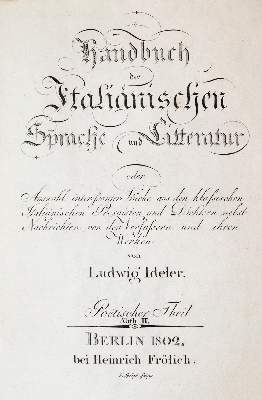 Handbuch
der
Italiänischen
Sprache und Litteratur
oder
Auswahl interessanter Stücke aus den klassischen
Italiänischen Prosaisten und Dichtern nebst
Nachrichten von den Verfassern und ihren
Werken
von
Ludwig Ideler.
Poetischer Theil
BERLIN 1802.
bei Heinrich Frölich.